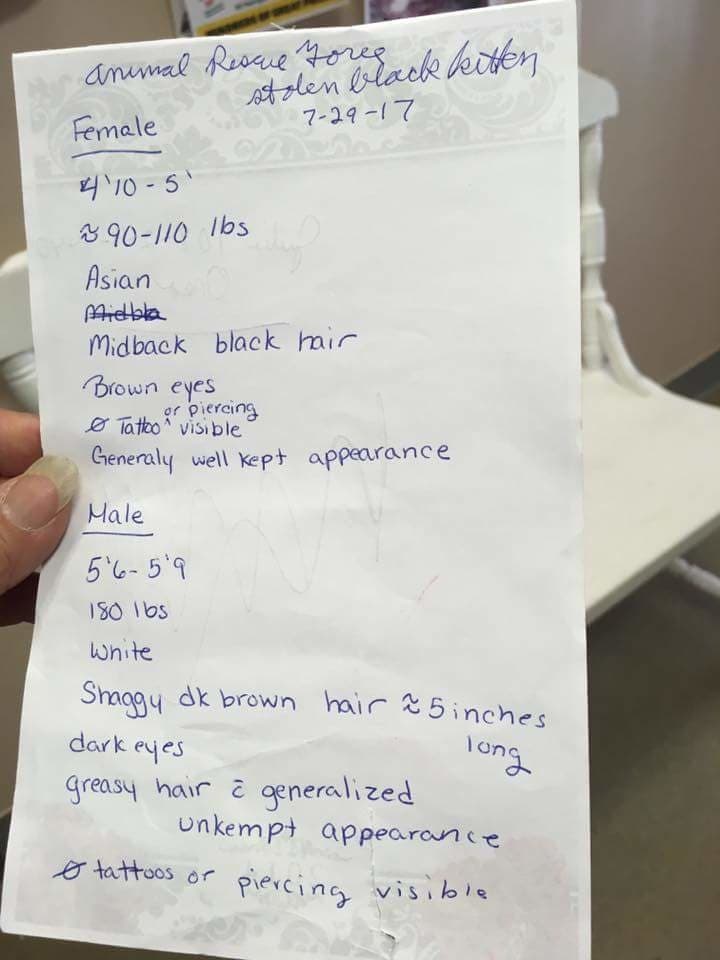 Animal Rescue Force
stolen black kitten
7-29-17
Female
4'10 - 5'
≈ 90-110 lbs
Asian
Midbla
Midback black hair
Brown eyes
or piercing
Ø Tattoo ^ visible
Generaly well kept appearance
Male
5'6 - 5'9
180 lbs
White
Shaggy dk brown hair ≈ 5 inches
long
dark eyes
greasy hair c̄ generalized
unkempt appearance
Ø tattoos or piercing visible